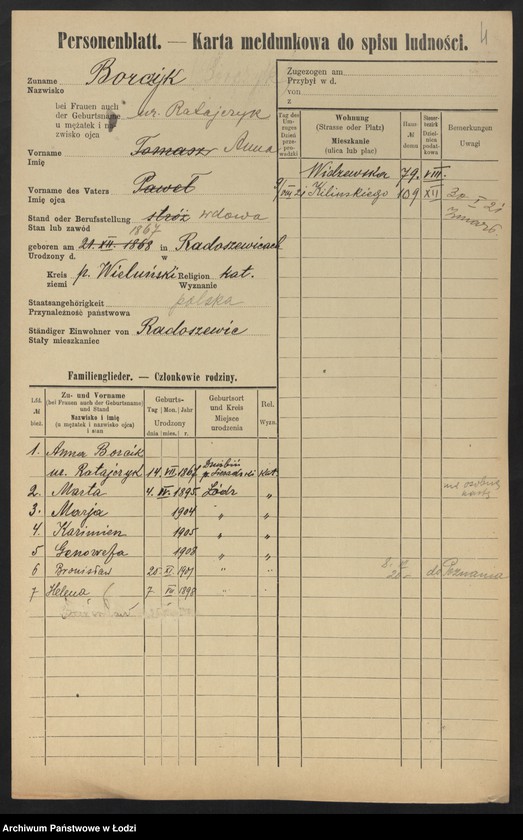 4
Personenblatt. — Karta meldunkowa do spisu ludności.
Zuname Borcijk
Nazwisko
bei Frauen auch
der Geburtsname ur. Ratajczyk
u mężatek i na-
zwisko ojca
Vorname Tomasz Anna
Imię
Vorname des Vaters Paweł
Imie ojca
Stand oder Berufsstellung stróż wdowa
Stan lub zawód 1867
geboren am 21. XII. 1868 in Radoszewicach
Urodzony d. w
Kreis p. Wieluński Religion kat.
ziemi Wyznanie
Staatsangehörigkeit polska
Przynależność państwowa
Ständiger Einwohner von Radoszewic
Stały mieszkaniec
Zugezogen am
Przybył w d.
von
z
Tag des Um-zuges Dzień prze-prowadzki
Wohnung (Strasse oder Platz) Mieszkanie (ulica lub plac)
Haus- № domu
Steuer-bezirk Dzielnica podatkowa
Bemerkungen Uwagi
Widzewska 79. VIII.
9/VIII 21 Kilinskiego 109 XII
zmarł
Familienglieder. — Członkowie rodziny.
Lfd. № bież.
Zu- und Vorname (bei Frauen auch der Geburtsname) und Stand Nazwisko i imię (u mężatek i nazwisko ojca) i stan
Geburts- Tag Mon. Jahr Urodzony dnia mies. r.
Geburtsort und Kreis Miejsce urodzenia
Rel. Wyzn.
1. Anna Borcik
ur. Ratajczyk 14. VII 1867 p. Sieradzki kat.
2. Marta 4. 1895 Łódź „
3. Marja 1904 „ „
4. Kazimierz 1905 „ „
5 Genowefa 1908 „ „
6 Bronisław 25 XI 1901 „ „
do Poznania
7 Helena 7 VII 1898 „ „
Archiwum Państwowe w Łodzi